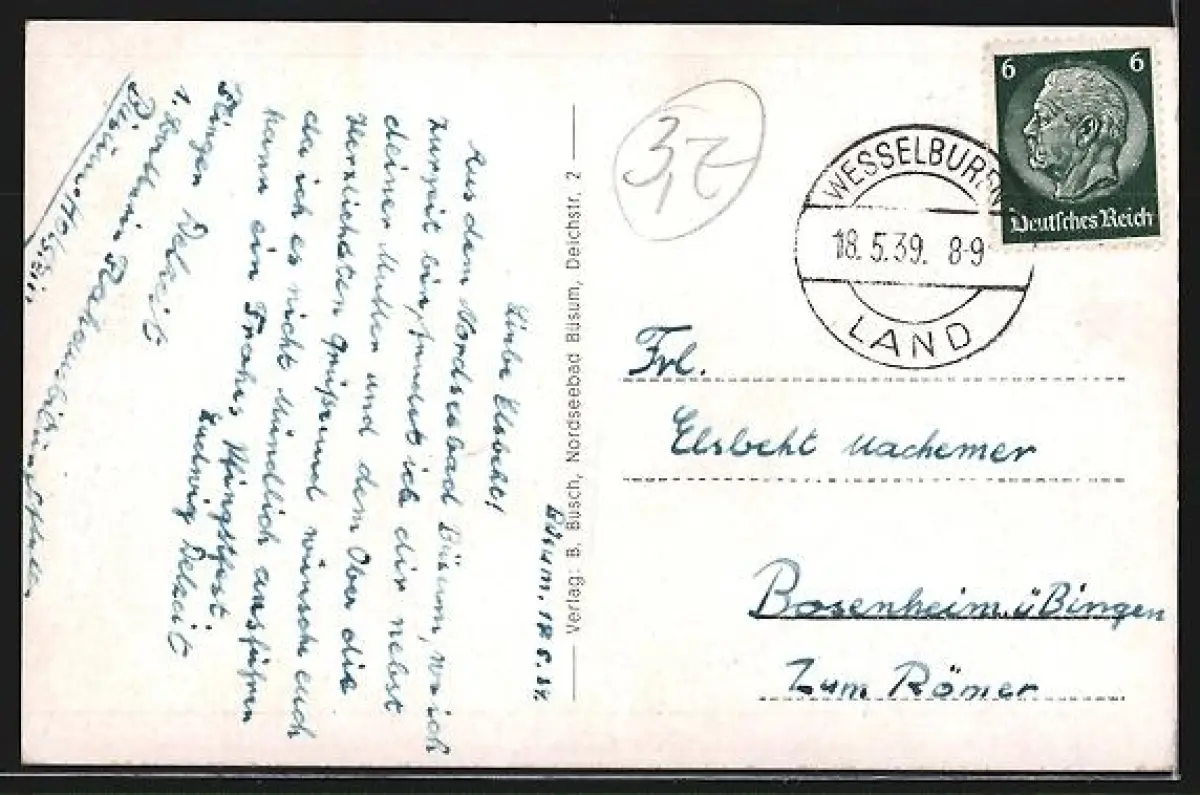 Büsum. 17.5.39.
Liebe Elsbeht!
Aus dem Nordseebad Büsum, wo ich
zurzeit bin, sendet ich dir nebst
deiner Mutter und dem Ober die
Herzlichsten Grüße und wünsche euch
da ich es nicht Mündlich ausführen
kann ein Frohes Pfingstfest.
Ludwig Delzeit
Flieger Delzeit
1.
Büsum-Holstein
Verlag: B. Busch, Nordseebad Büsum, Deichstr. 2
3,-
6 6
Deutsches Reich
WESSELBUREN
18.5.39. 8-9
LAND
Frl.
Elsbeht Machemer
Bosenheim ü Bingen
Zum Römer